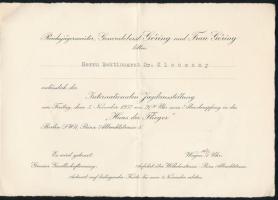 Reichsjägermeister, Generaloberst Göring und Frau Göring
bitten
Herrn Sektionsrat Dr. Kleczany
anlässlich der
Internationalen Jagdausstellung
am Freitag, dem 5. November 1937 um 20 Uhr zum Abendempfang in das
"Haus der Flieger"
Berlin SW 11, Prinz Albrechtstrasse 5
Es wird gebeten:
Grosser Gesellschaftsanzug
Wagen: Uhr
Anfahrt: Wilhelmstrasse - Prinz Albrechtstrasse
Antwort auf beiliegender Karte bis zum 1. November erbeten